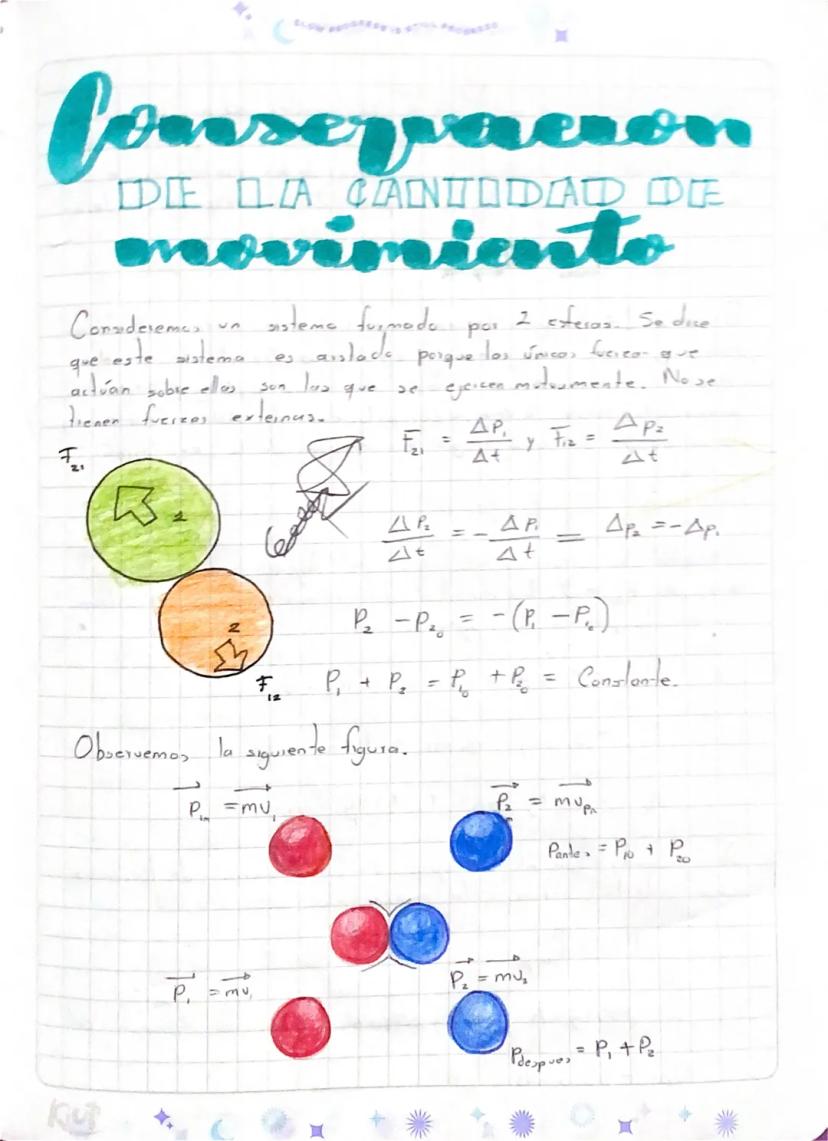 SLOW PROGRESS IS STILL PROGRESS
Conservacion
DE LA CANTIDAD DE
movimiento
Consideremos un sistema formado por 2 esferas. Se dice
que este sistema es aislado porque las únicas fuerzas que
actúan sobre ellas son las que se ejercen mutuamente. No se
tienen fuerzas externas.
F₂₁ = ΔP₁/Δt y F₁₂ = ΔP₂/Δt
F₂₁
1
ΔP₂/Δt = - ΔP₁/Δt = ΔP₂ = -ΔP₁
P₂ - P₂₀ = -(P₁ - P₁₀)
2
F₁₂
P₁ + P₂ = P₁₀ + P₂₀ = Constante.
Observemos la siguiente figura.
P₁ₙ = mv₁
P₂ = mv
Pantes = P₁₀ + P₂₀
P₁ = mv₁
P₂ = mv₂
Pdespues = P₁ + P₂